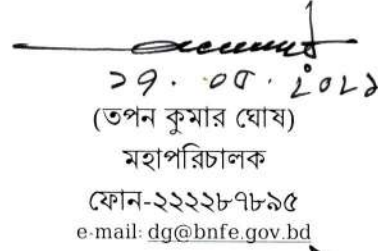 (তপন কুমার ঘোষ)
মহাপরিচালক
ফোন-২২২২৮৭৮৯৫
e-mail: dg@bnfe.gov.bd